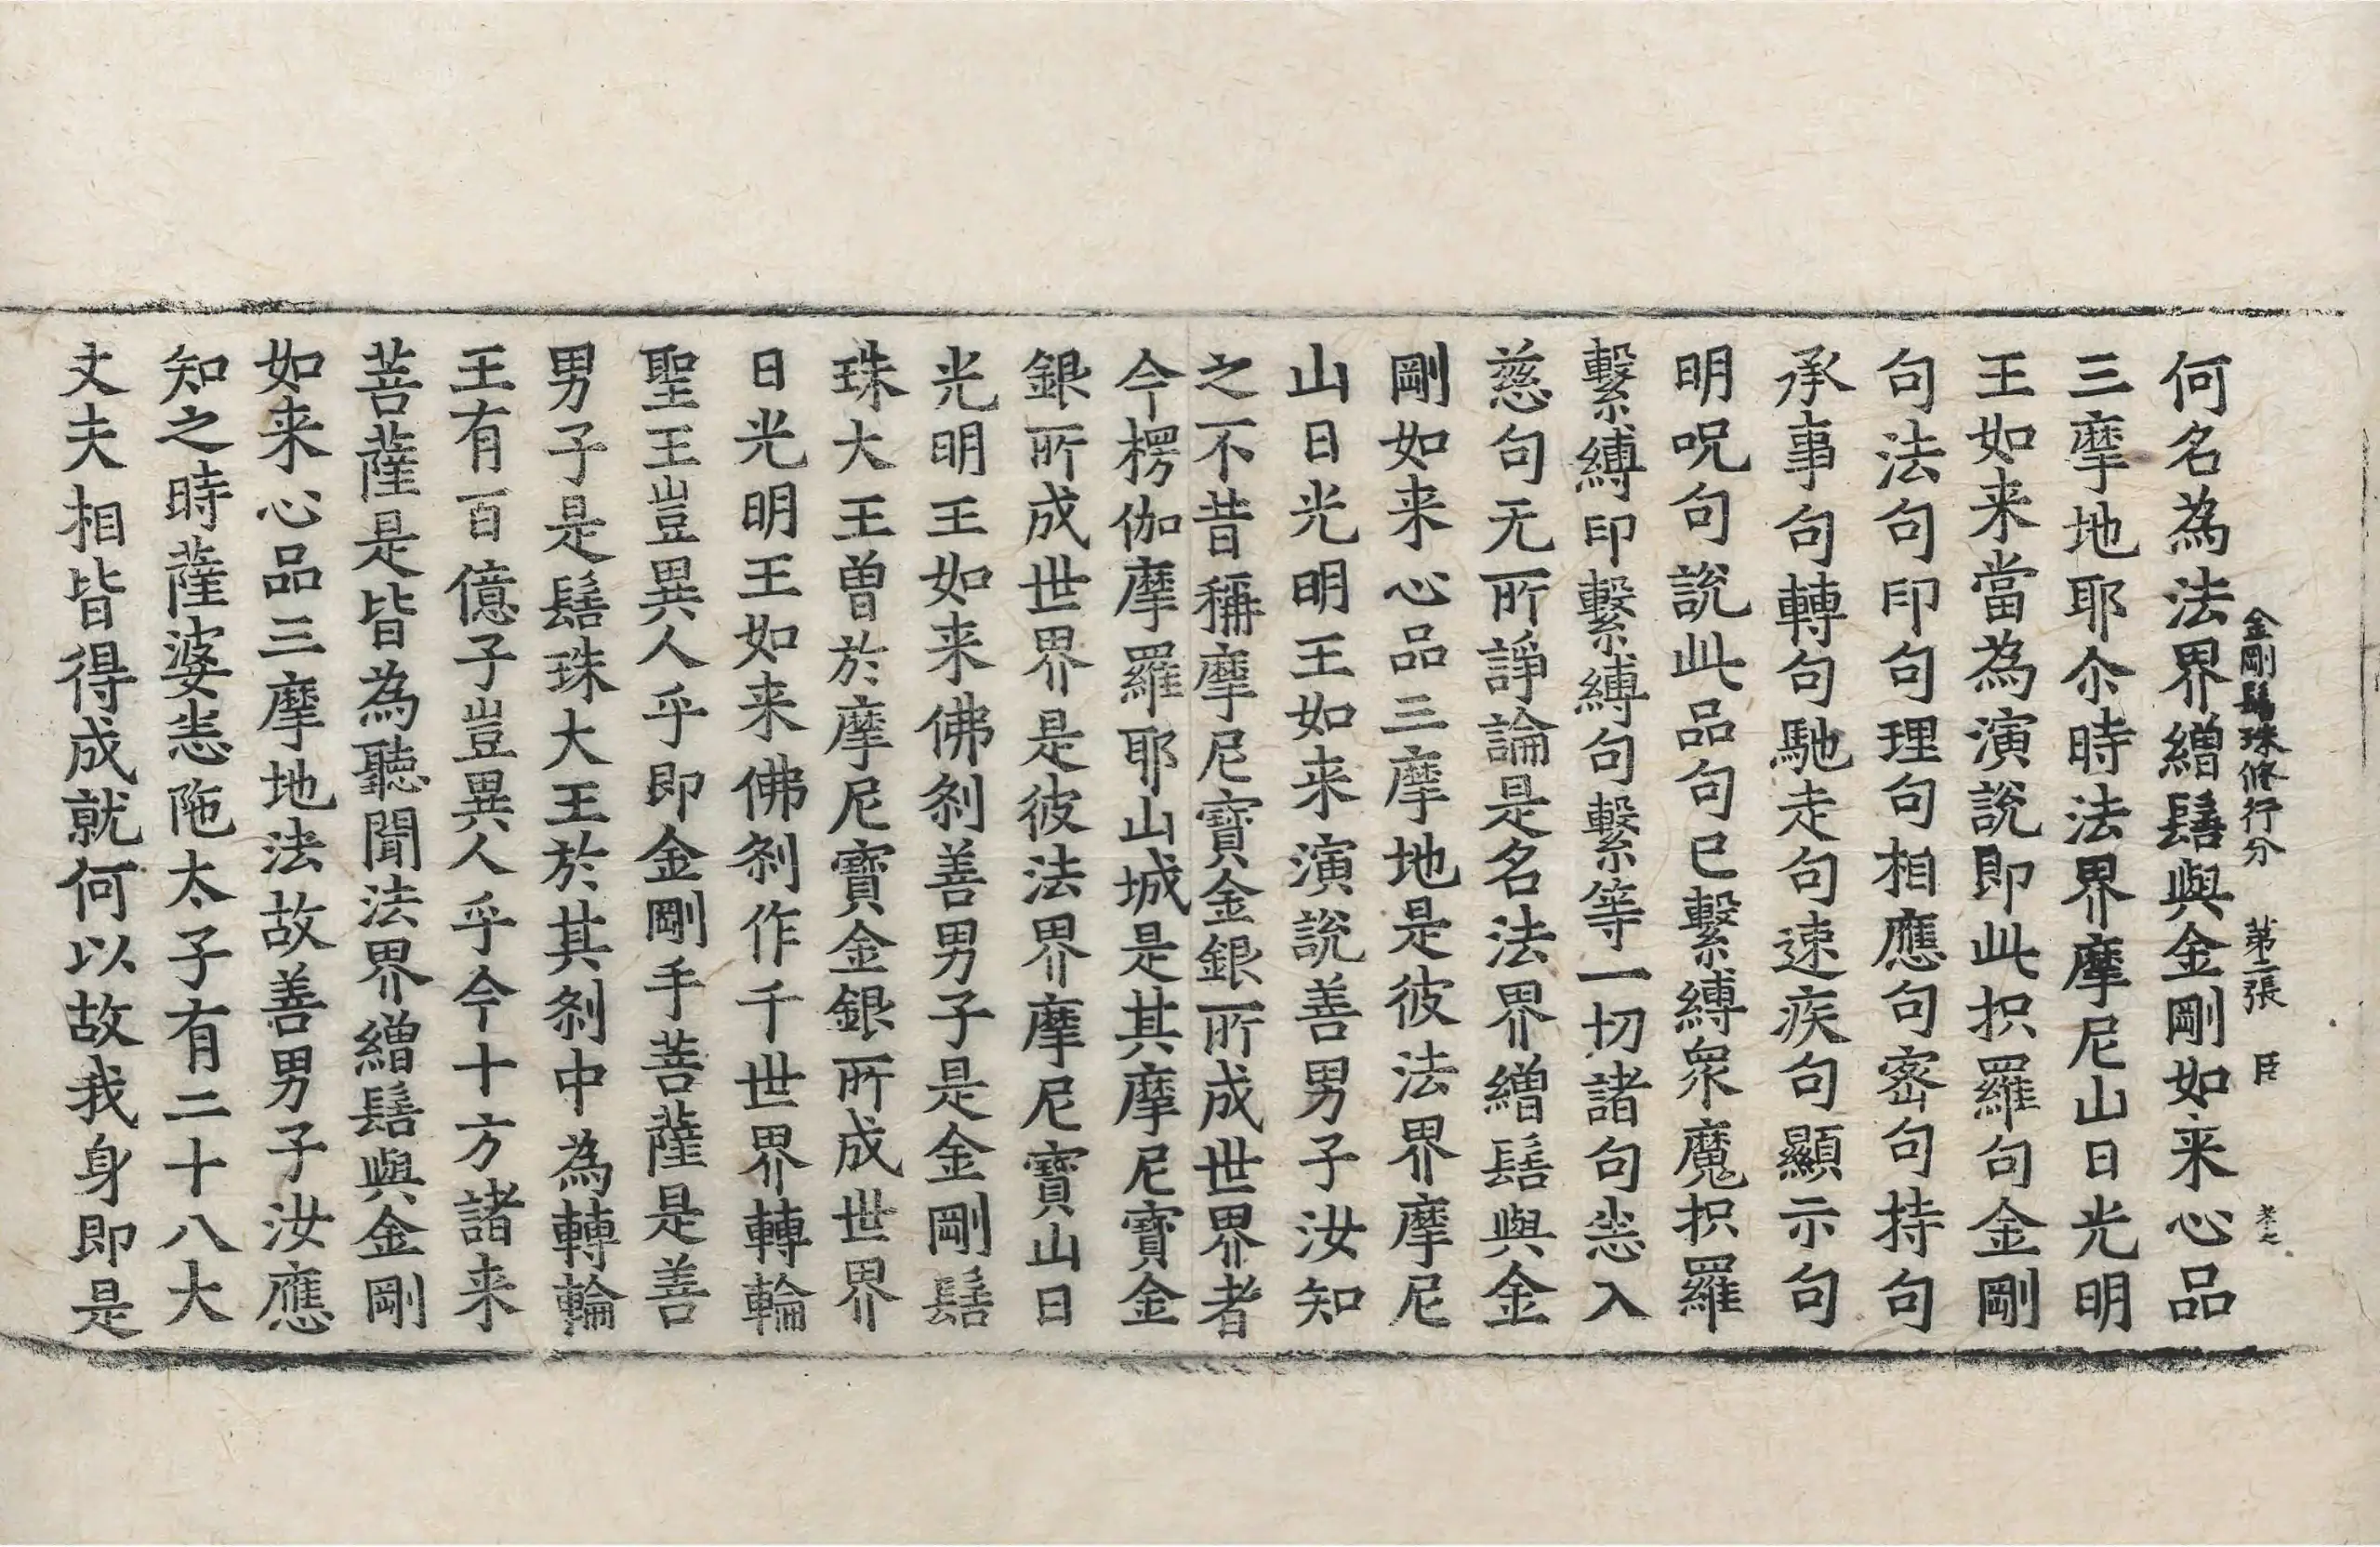 金剛髻珠修行分 第二張 臣
何名為法界繒髻與金剛如来心品
三摩地耶尒時法界摩尼山日光明
王如来當為演說即此抧羅句金剛
句法句印句理句相應句密句持句
承事句轉句馳走句速疾句顯示句
明呪句說此品句已繫縛衆魔抧羅
繫縛印繫縛句繫等一切諸句恙入
慈句无所諍論是名法界繒髻與金
剛如来心品三摩地是彼法界摩尼
山日光明王如来演說善男子汝知
之不昔稱摩尼寶金銀所成世界者
今楞伽摩羅耶山城是其摩尼寶金
銀所成世界是彼法界摩尼寶山日
光明王如来佛刹善男子是金剛髻
珠大王曽於摩尼寶金銀所成世界
日光明王如来佛刹作千世界轉輪
聖王豈異人乎即金剛手菩薩是善
男子是髻珠大王於其刹中為轉輪
王有百億子豈異人乎今十方諸来
菩薩是皆為聽聞法界繒髻與金剛
如来心品三摩地法故善男子汝應
知之時薩婆恙陁太子有二十八大
丈夫相皆得成就何以故我身即是